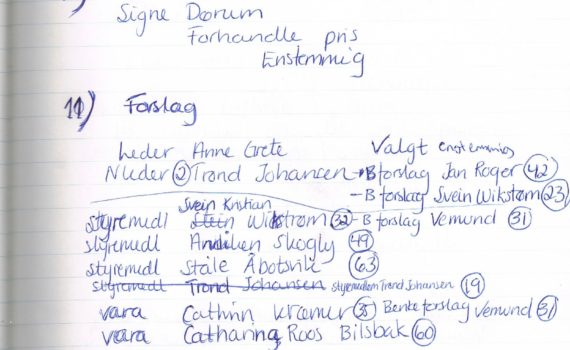 Signe Dørum
Forhandle pris
Enstemmig
11) Forslag
Leder Anne Grete Valgt enstemmig
Nleder (2) Trond Johansen - B forslag Jan Roger (42)
- B forslag Svein Wikstrøm (23)
Svein Kristian
styremedl Stein Wikstrøm (32) - B forslag Vemund (31)
styremedl Anniken Skogly (49)
styremedl Ståle Åbotsvik (63)
styremedl Trond Johansen styremedlem Trond Johansen (19)
vara Cathrin Kræmer Benke forslag Vemund (31)
vara Catharina Roos Bilsbak (60)